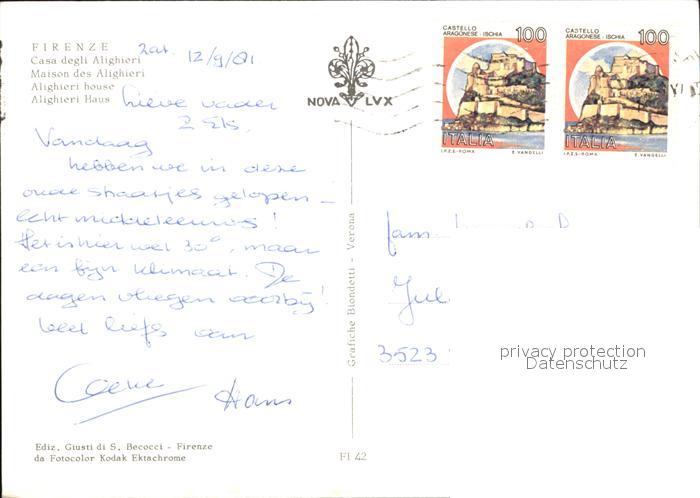 FIRENZE
Casa degli Alighieri
Maison des Alighieri
Alighieri house
Alighieri Haus
Zat. 12/9/81
NOVA LVX
CASTELLO
ARAGONESE - ISCHIA 100
ITALIA
I.P.Z.S.-ROMA E. VANGELLI
CASTELLO
ARAGONESE - ISCHIA 100
ITALIA
I.P.Z.S.-ROMA E. VANGELLI
Lieve vader
Vandaag
hebben we in deze
oude straatjes gelopen -
echt middeleeuws!
Het is hier wel 30°, maar
een fijn klimaat. De
dagen vliegen voorbij!
Veel liefs van
Hans
Grafiche Biondetti - Verona
Fam.
Jul
3523
privacy protection
Datenschutz
Ediz. Giusti di S. Becocci - Firenze
da Fotocolor Kodak Ektachrome
FI 42